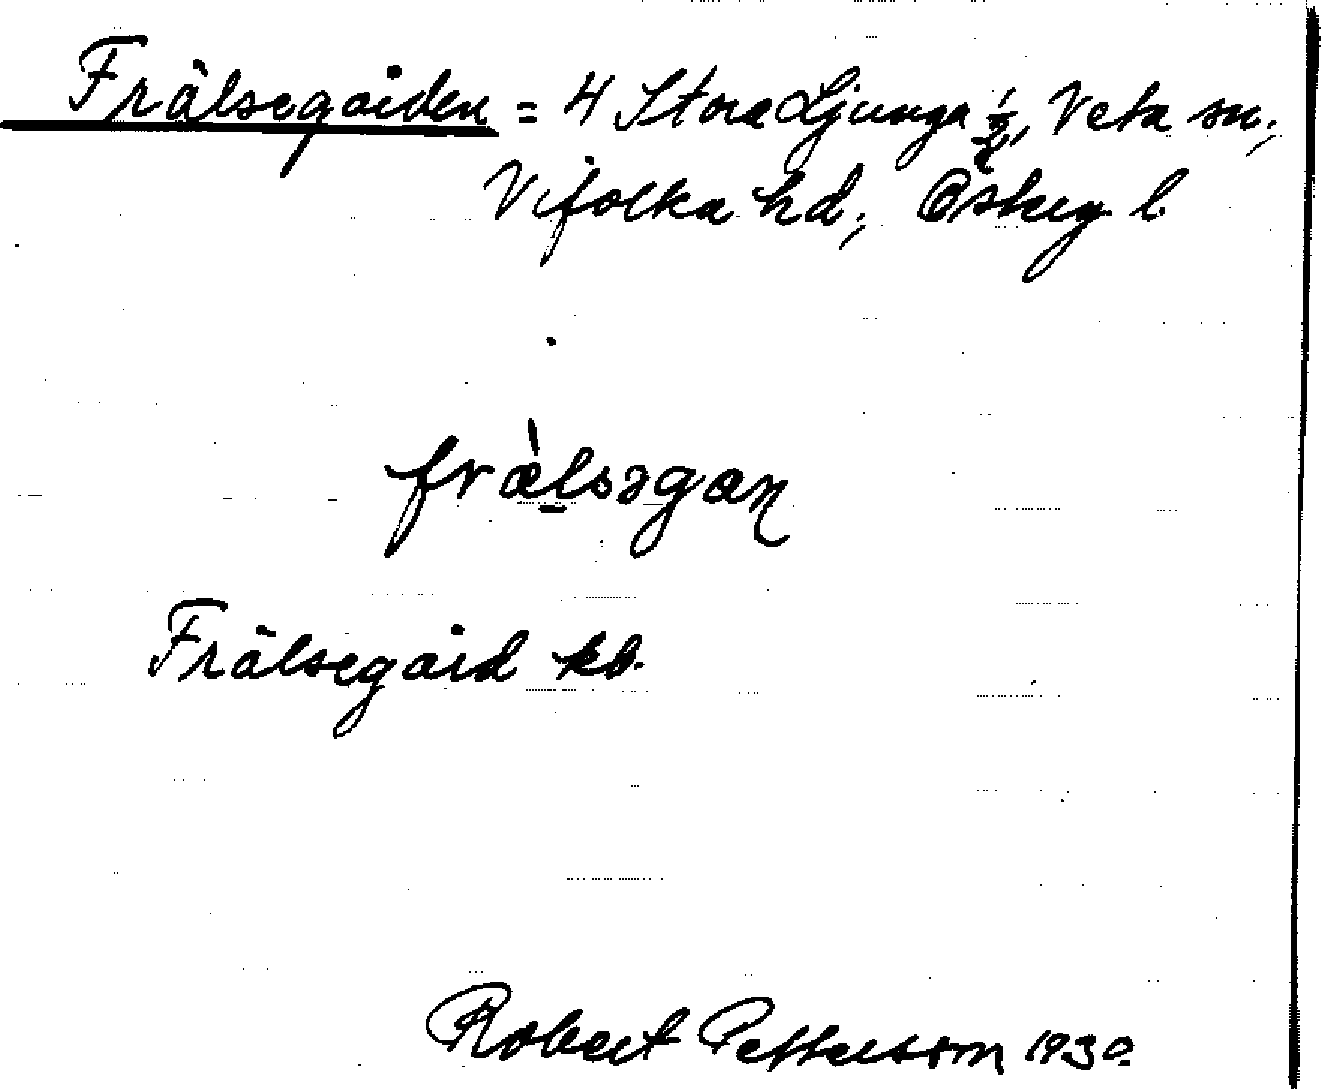 Frälsegården = 4 Stora Ljunga ½, Veta sn,
Vifolka hd, Östeg l.
frælsəgaɳ
Frälsegård kb.
Robert Petterson 1930.